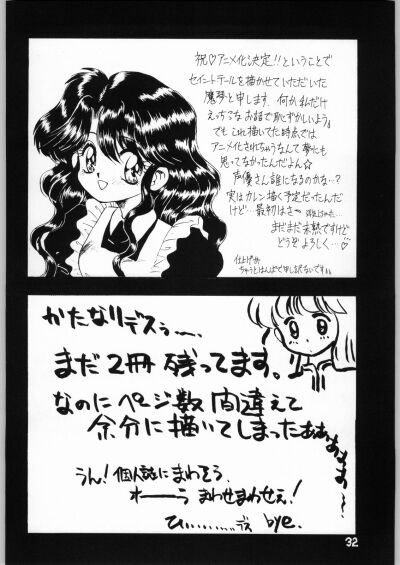 祝♡アニメ化決定!!ということで
セイントテールを描かせていただいた
魔琴と申します。何か私だけ
えっちこなお話で恥ずかしいよう
でも これ描いてた時点では
アニメ化されちゃうなんて夢にも
思ってなかったんだよん☆
声優さん誰になるのかな…?
実はカレン描く予定だったんだ
けど…最初はさ〜
まだまだ未熟ですけど
どうぞよろしく…♡
仕上げが
ちゅうとはんぱで申し訳ないです
かたなりデスぅ〜…
まだ2冊残ってます。
なのにページ数間違えて
余分に描いてしまったぁぁぁぁぁぁ〜
うん!個人誌にまわそう、
オーーーらまわせまわせぇ!
ひぃ………デス bye.
32